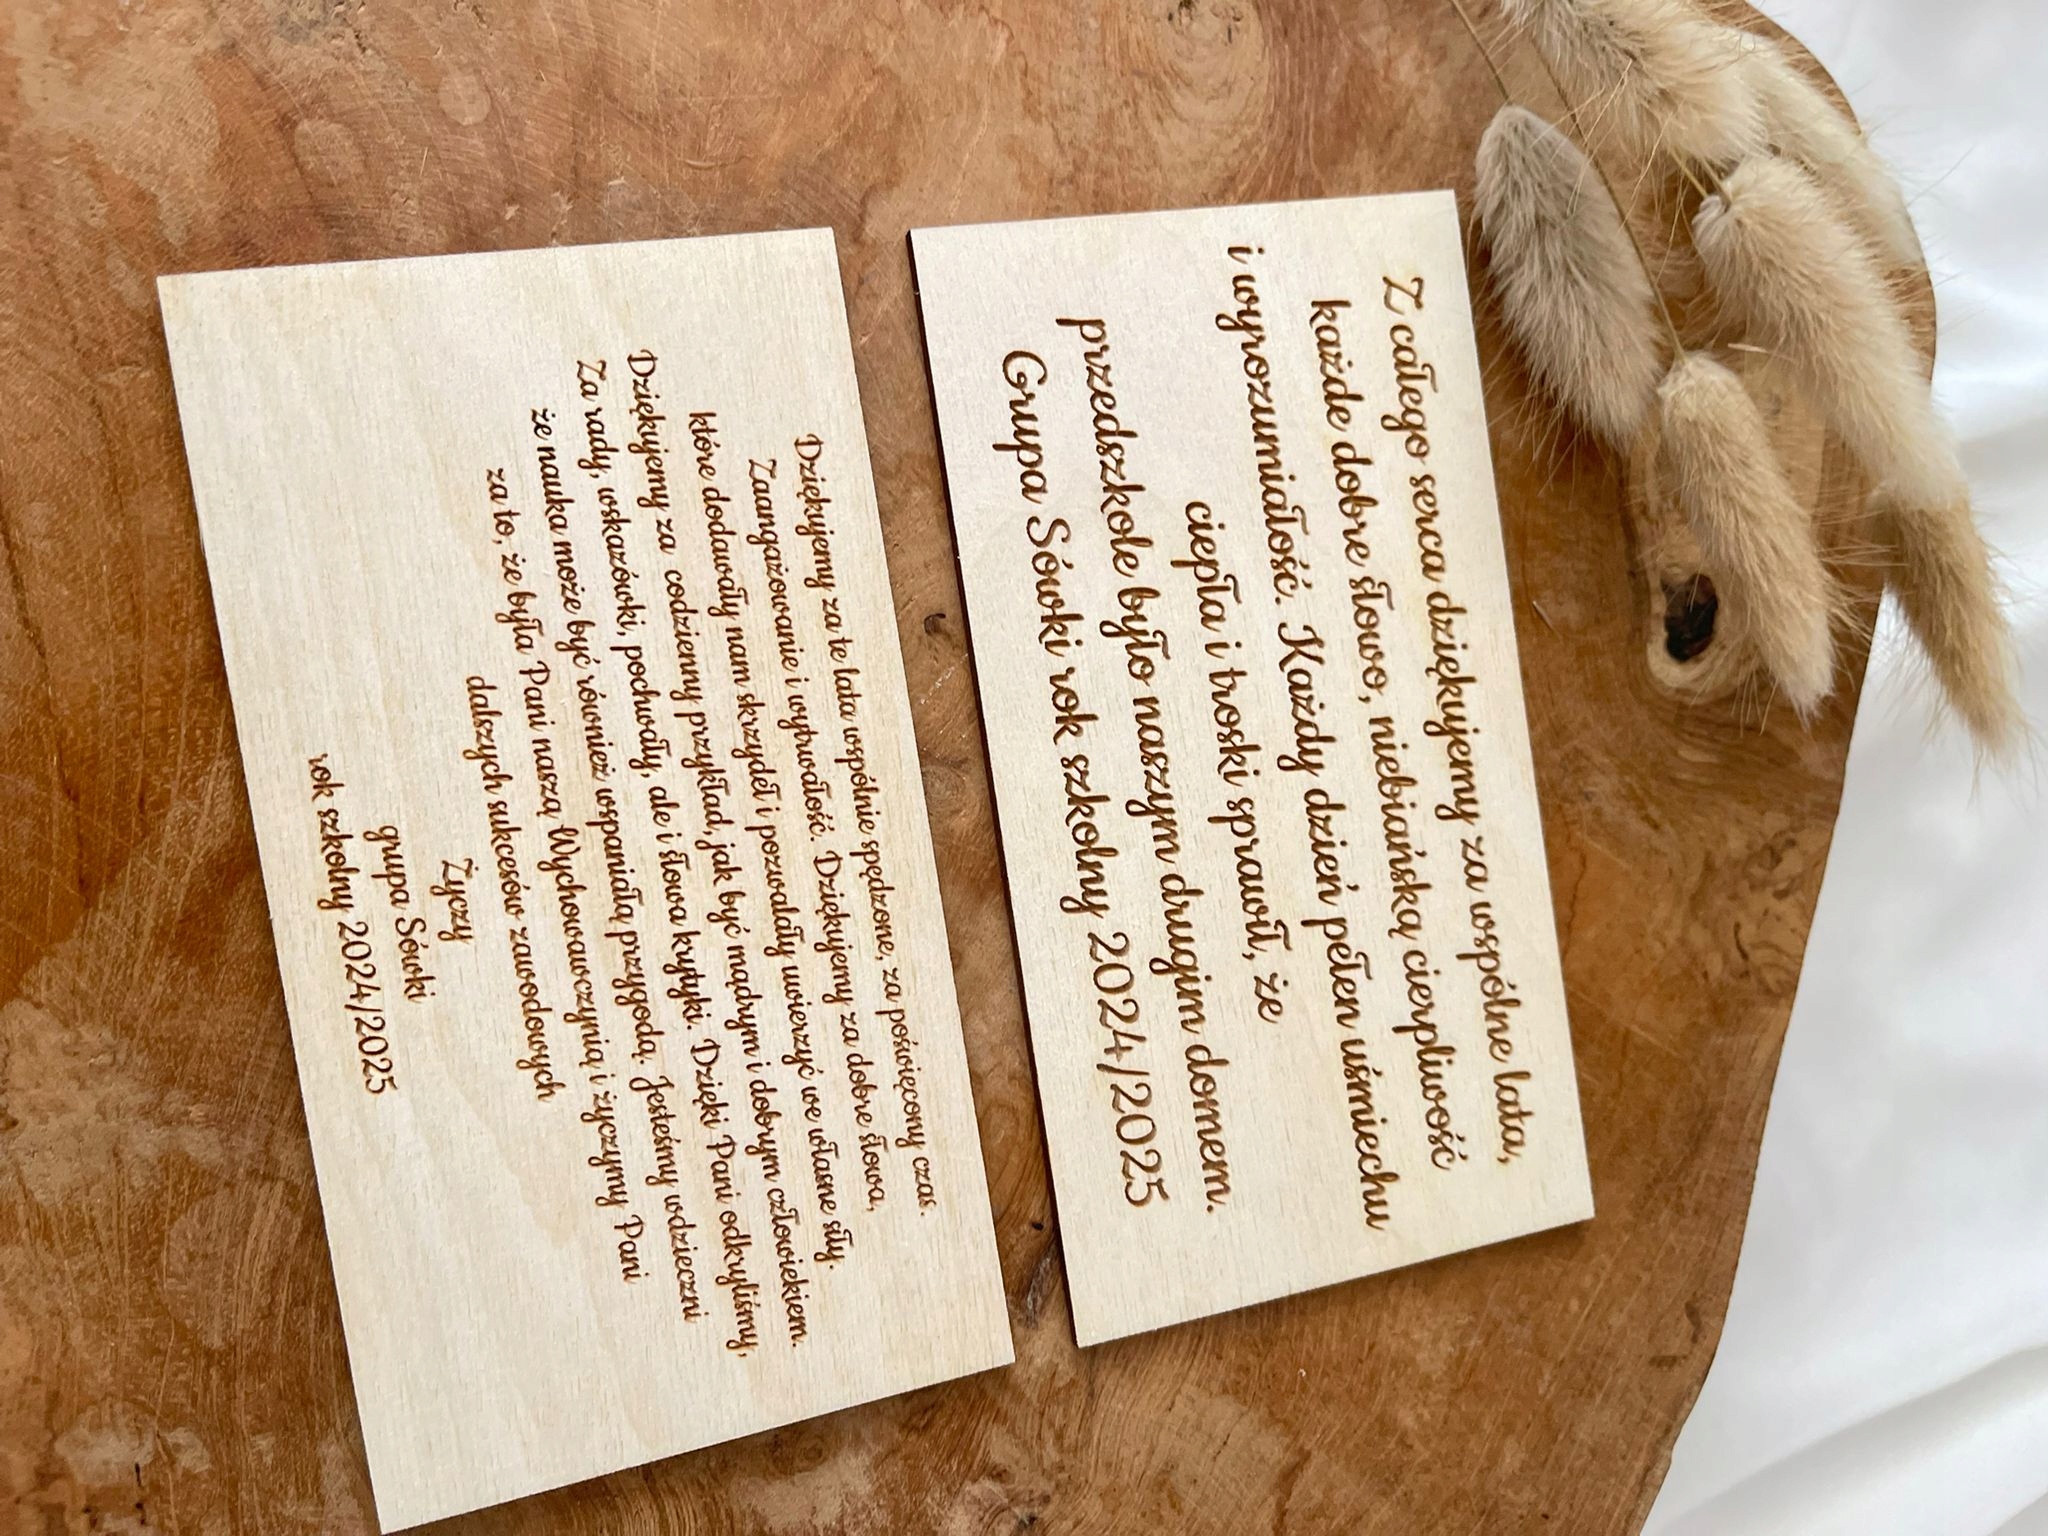 Z całego serca dziękujemy za wspólne lata,
każde dobre słowo, niebiańską cierpliwość
i wyrozumiałość. Każdy dzień pełen uśmiechu
ciepła i troski sprawił, że
przedszkole było naszym drugim domem.
Grupa Sówki rok szkolny 2024/2025
Dziękujemy za te lata wspólnie spędzone, za poświęcony czas.
Zaangażowanie i wytrwałość. Dziękujemy za dobre słowa,
które dodawały nam skrzydeł i pozwalały uwierzyć we własne siły.
Dziękujemy za codzienny przykład, jak być mądrym i dobrym człowiekiem.
Za rady, wskazówki, pochwały, ale i słowa krytyki. Dzięki Pani odkryliśmy,
że nauka może być również wspaniałą przygodą. Jesteśmy wdzieczni
za to, że była Pani naszą Wychowawczynią i życzymy Pani
dalszych sukcesów zawodowych
Życzy
grupa Sówki
rok szkolny 2024/2025